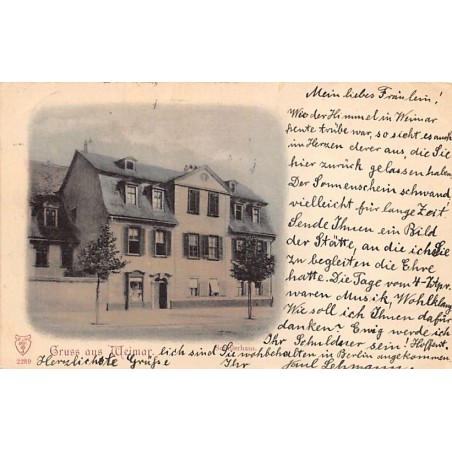 Mein liebes Fräulein!
Wie der Himmel in Weimar
heute trübe war, so sieht es auch
im Herzen derer aus, die Sie
hier zurück gelassen haben
Der Sonnenschein schwand
vielleicht für lange Zeit
Sende Ihnen ein Bild
der Stätte, an die ich Sie
zu begleiten die Ehre
hatte. Die Tage vom 4-7 Apr.
waren Musik, Wohlklang
Wie soll ich Ihnen dafür
danken? Ewig werde ich
Ihr Schuldner sein! Hoffent,
lich sind Sie wohbehalten in Berlin angekommen
Gruss aus Weimar.
2289
Herzlichste Grüße
Ihr Paul Lehmann